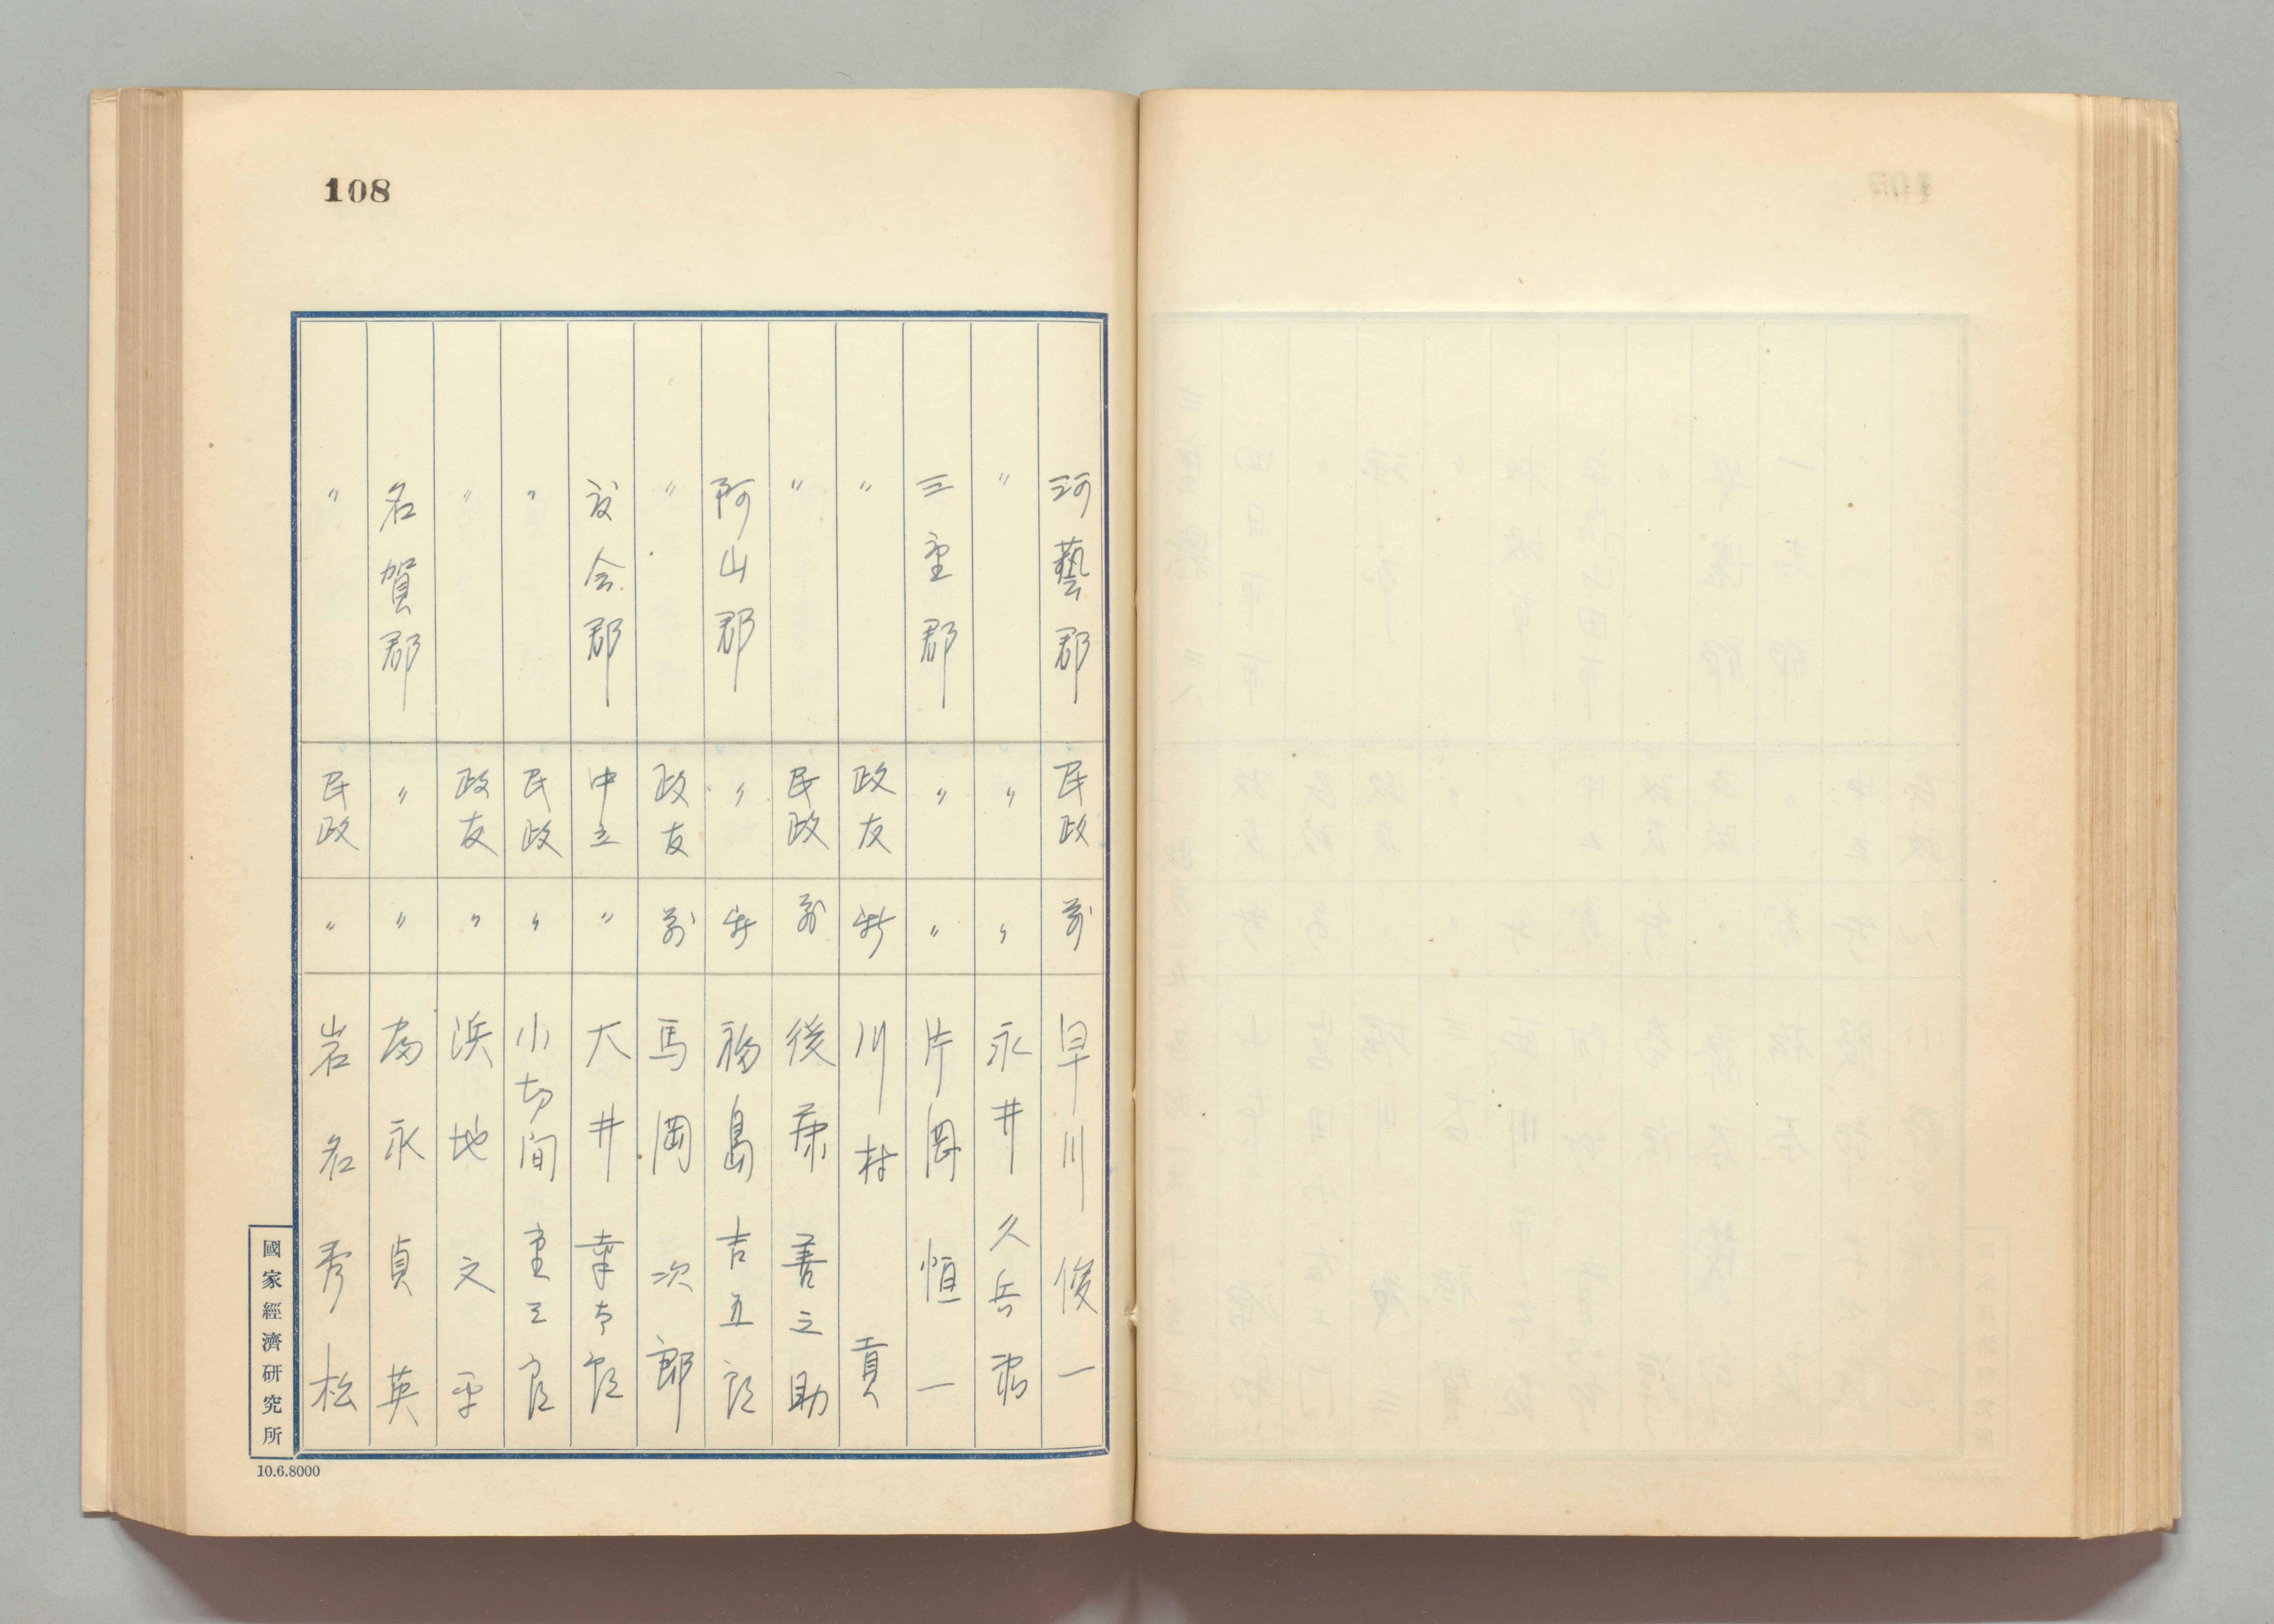 108
河藝郡 民政 前 早川俊一
〃 〃 〃 永井久兵衛
三重郡 〃 〃 片岡恒一
〃 政友 新 川村貢
〃 民政 前 後藤善之助
阿山郡 〃 新 福島吉五郎
〃 政友 前 馬岡次郎
度会郡 中立 〃 大井幸太郎
〃 民政 〃 小切間重三郎
〃 政友 〃 浜地文平
名賀郡 〃 〃 富永貞英
〃 民政 〃 岩名秀松
國家經濟研究所
10.6.8000